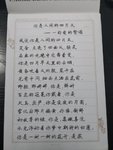 你是人间的四月天
——一句爱的赞颂
我说你是人间的四月天
笑音点亮了四面风；轻灵
在春的光艳中交舞着变
你是四月早天里的云烟
黄昏吹着风的软，星子在
无意中闪，细雨点洒在花前
那轻，那娉婷，你是，鲜妍
百花的冠冕你戴着，你是
天真，庄严，你是夜夜的月圆
雪化后那片鹅黄，你像；新鲜
初放芽的绿，你是；柔嫩喜悦
水光浮动着你梦期待中白莲
你是一树一树的花开，是燕